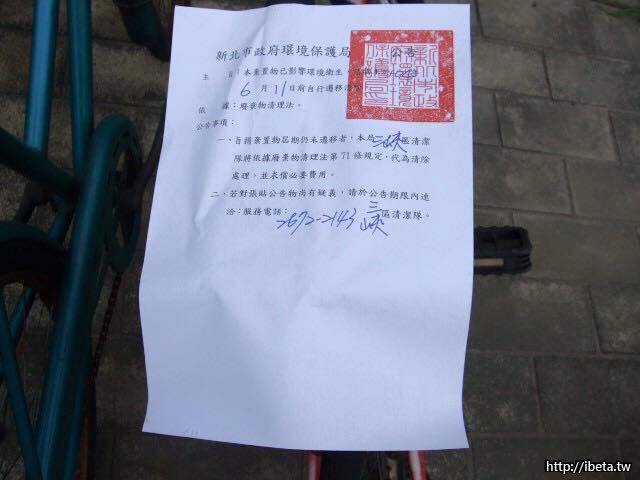 新北市政府環境保護局 公告
主 旨：本棄置物已影響環境衛生，
6 月 11 日前自行遷移
依 據：廢棄物清理法。
公告事項：
一、旨揭棄置物屆期仍未遷移者，本局三峽區清潔
隊將依據廢棄物清理法第 71 條規定，代為清除
處理，並求償必要費用。
二、若對張貼公告物尚有疑義，請於公告期限內逕
洽：服務電話：2672-2143 三峽區清潔隊。
http://ibeta.tw